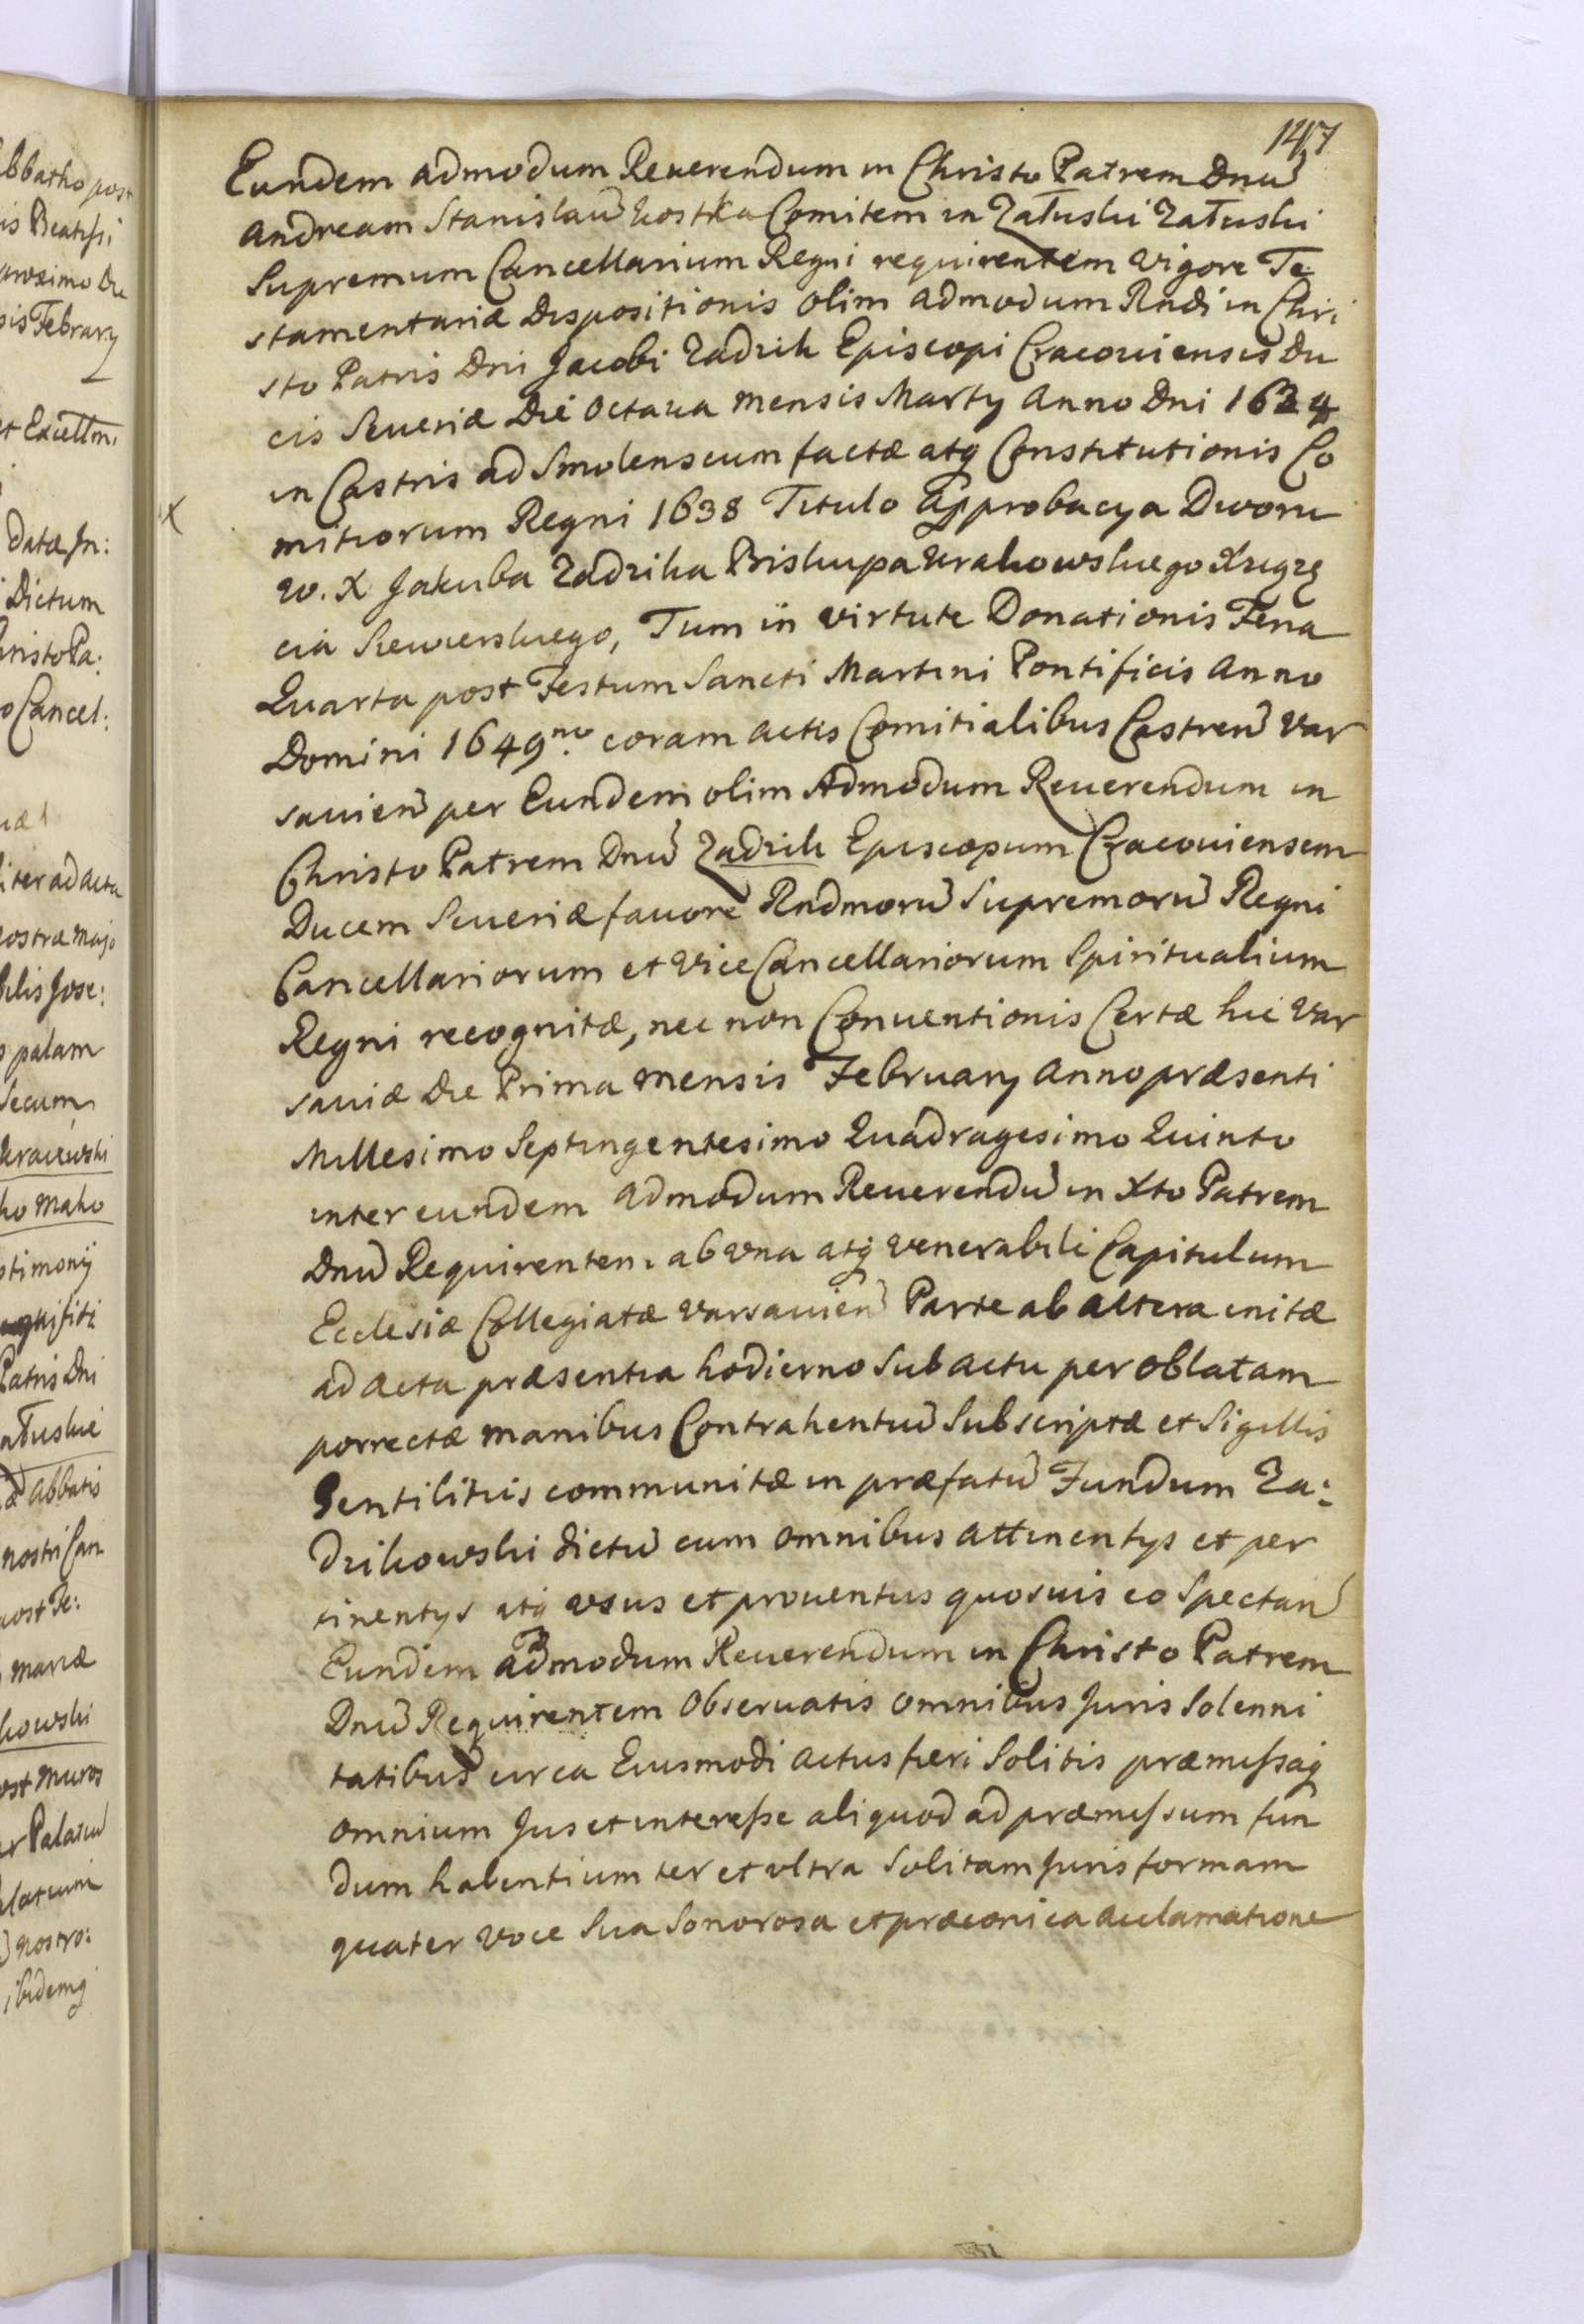 147
Eundem admodum Reuerendum in Christo Patrem Dnũ
Andream Stanislaũ Kostka Comitem in Załuski Załuski
Supremum Cancellarium Regni requirentem vigore Te
stamentariæ Dispositionis olim admodum Rndi in Chri
sto Patris Dni Jacobi Zadzik Episcopi Cracouiensis Du
cis Seueriæ Die Octaua mensis Marty Anno Dni 1634
in Castris ad Smolenscum factæ atq Constitutionis Co
mitiorum Regni 1638 Titulo Approbacya Dworu
w. X Jakuba Zadzika Biskupa Krakowskiego Xiązę
cia Siewierskiego, Tum in virtute Donationis Feria
Quarta post Festum Sancti Martini Pontificis Anno
Domini 1649no coram actis Comitialibus Castren̄ Var
sauien̄ per Eundem olim Admodum Reuerendum in
Christo Patrem Dnũ Zadzik Episcopum Cracouiensem
Ducem Seueriæ fauore Rndmorũ Supremorũ Regni
Cancellariorum et ViceCancellariorum Spiritualium
Regni recognitæ, nec non Conuentionis Certæ hic Var
sauiæ Die Prima mensis February Anno præsenti
Millesimo Septingentesimo Quadragesimo Quinto
inter eundem admodum Reuerendũ in Xto Patrem
Dnũ Requirentem ab vna atq venerabili Capitulum
Ecclesiæ Collegiatæ Varsauien̄ Parte ab altera initæ
ad acta præsentia hodierno sub actu per oblatam
porrectæ manibus Contrahentiũ Subscriptæ et Sigillis
Gentilitiis communitæ in præfatũ Fundum Za:
dzikowski dictũ cum omnibus attinentys et per
tinentys atq vsus et prouentus quosuis eo spectan̄
Eundem admodum Reuerendum in Christo Patrem
Dnũ Requirentem obseruatis omnibus Juris Solenni
tatibus circa Eiusmodi actus fieri Solitis præmissaq
omnium Jus et interesse aliquod ad præmissum fun
dum habentium ter et vltra Solitam Juris formam
quater voce Sua Sonorosa et præconica acclamatione